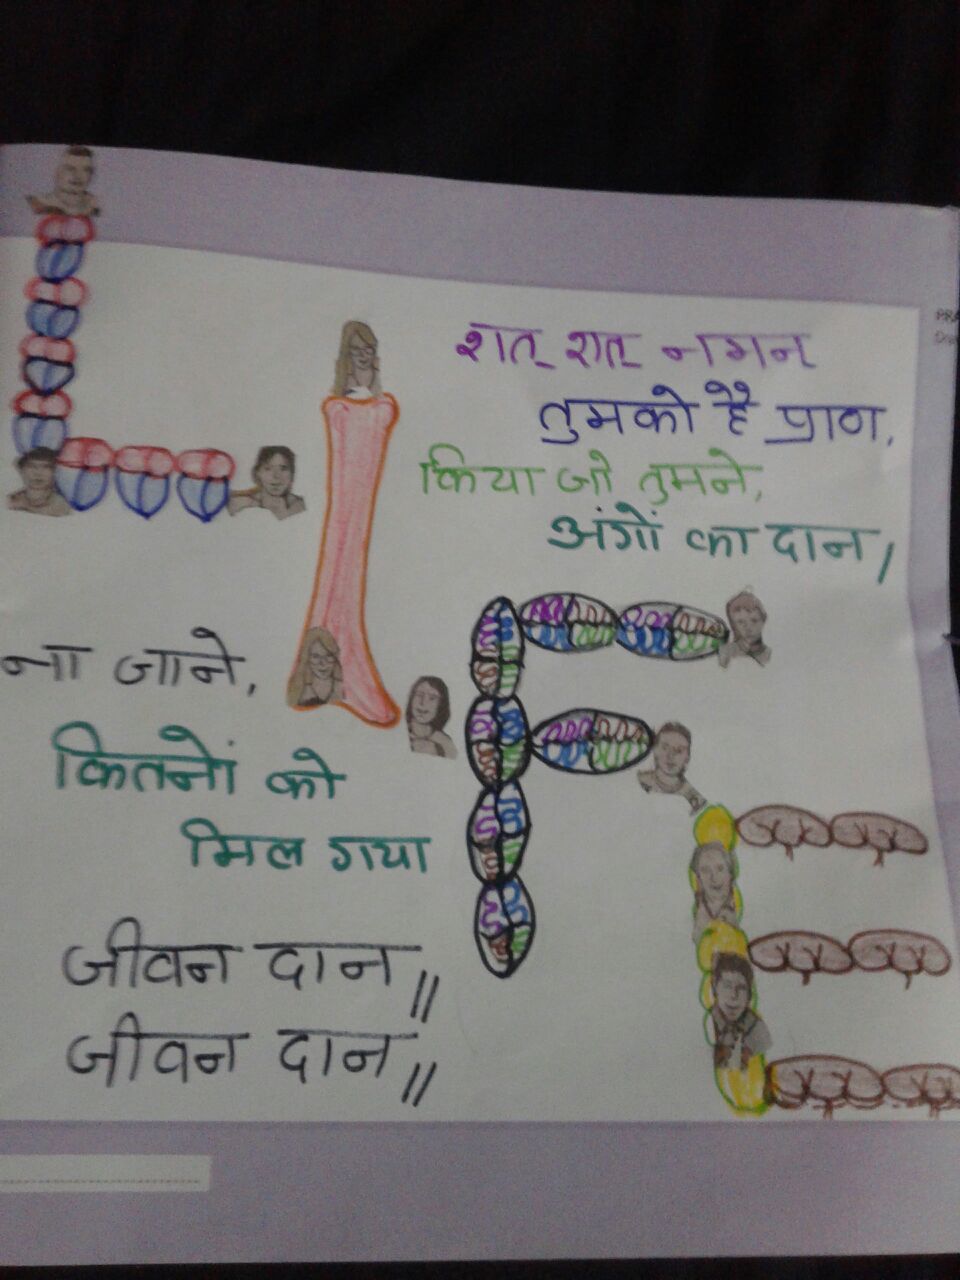 शत् शत् नमन्
तुमको है प्राण,
किया जो तुमने,
अंगों का दान/
ना जाने,
कितनों को
मिल गया
जीवन दान//
जीवन दान//
LIFE